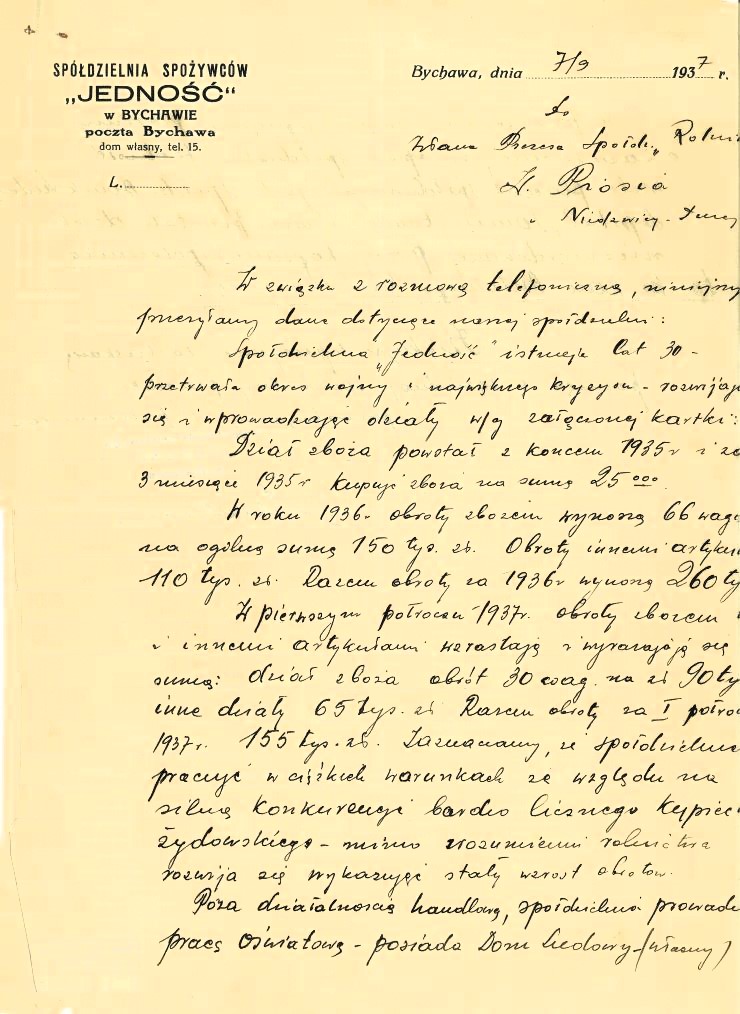 SPÓŁDZIELNIA SPOŻYWCÓW
„JEDNOŚĆ“
w BYCHAWIE
poczta Bychawa
dom własny, tel. 15.
L.
Bychawa, dnia 7/9 1937 r.
Do
Prezesa Spółdz. „Rolni
Prosia
Niedrzwicy-Duży
W związku z rozmową telefoniczną, niniejszy
przesyłamy dane dotyczące naszej spółdzielni:
Spółdzielnia „Jedność" istnieje lat 30 -
przetrwała okres wojny i największego kryzysu - rozwijają
się i wprowadzając działy w/g załączonej kartki:
Dział zboża powstał z końcem 1935r i za
3 miesiące 1935r kupuje zboża na sumę 25 000.
W roku 1936r obroty zbożem wynoszą 66 wago
na ogólną sumę 150 tys. zł. Obroty innemi artyku
110 tys. zł. Razem obroty za 1936r wynoszą 260 ty
W pierwszym półroczu 1937r. obroty zbożem
i innemi artykułami wzrastają i wyrażają się
sumą: dział zboża obrót 30 wag. na zł 90 ty
inne działy 65 tys. zł Razem obroty za I półro
1937r. 155 tys. zł. Zaznaczamy, że spółdzielnia
pracuje w ciężkich warunkach ze względu na
silną konkurencję bardzo licznego kupiec
żydowskiego - mimo zrozumieniu rolnictwa
rozwija się wykazując stały wzrost obrotów.
Poza działalnością handlową, spółdzielnia prowadzi
pracę oświatową - posiada Dom Ludowy - (własny)